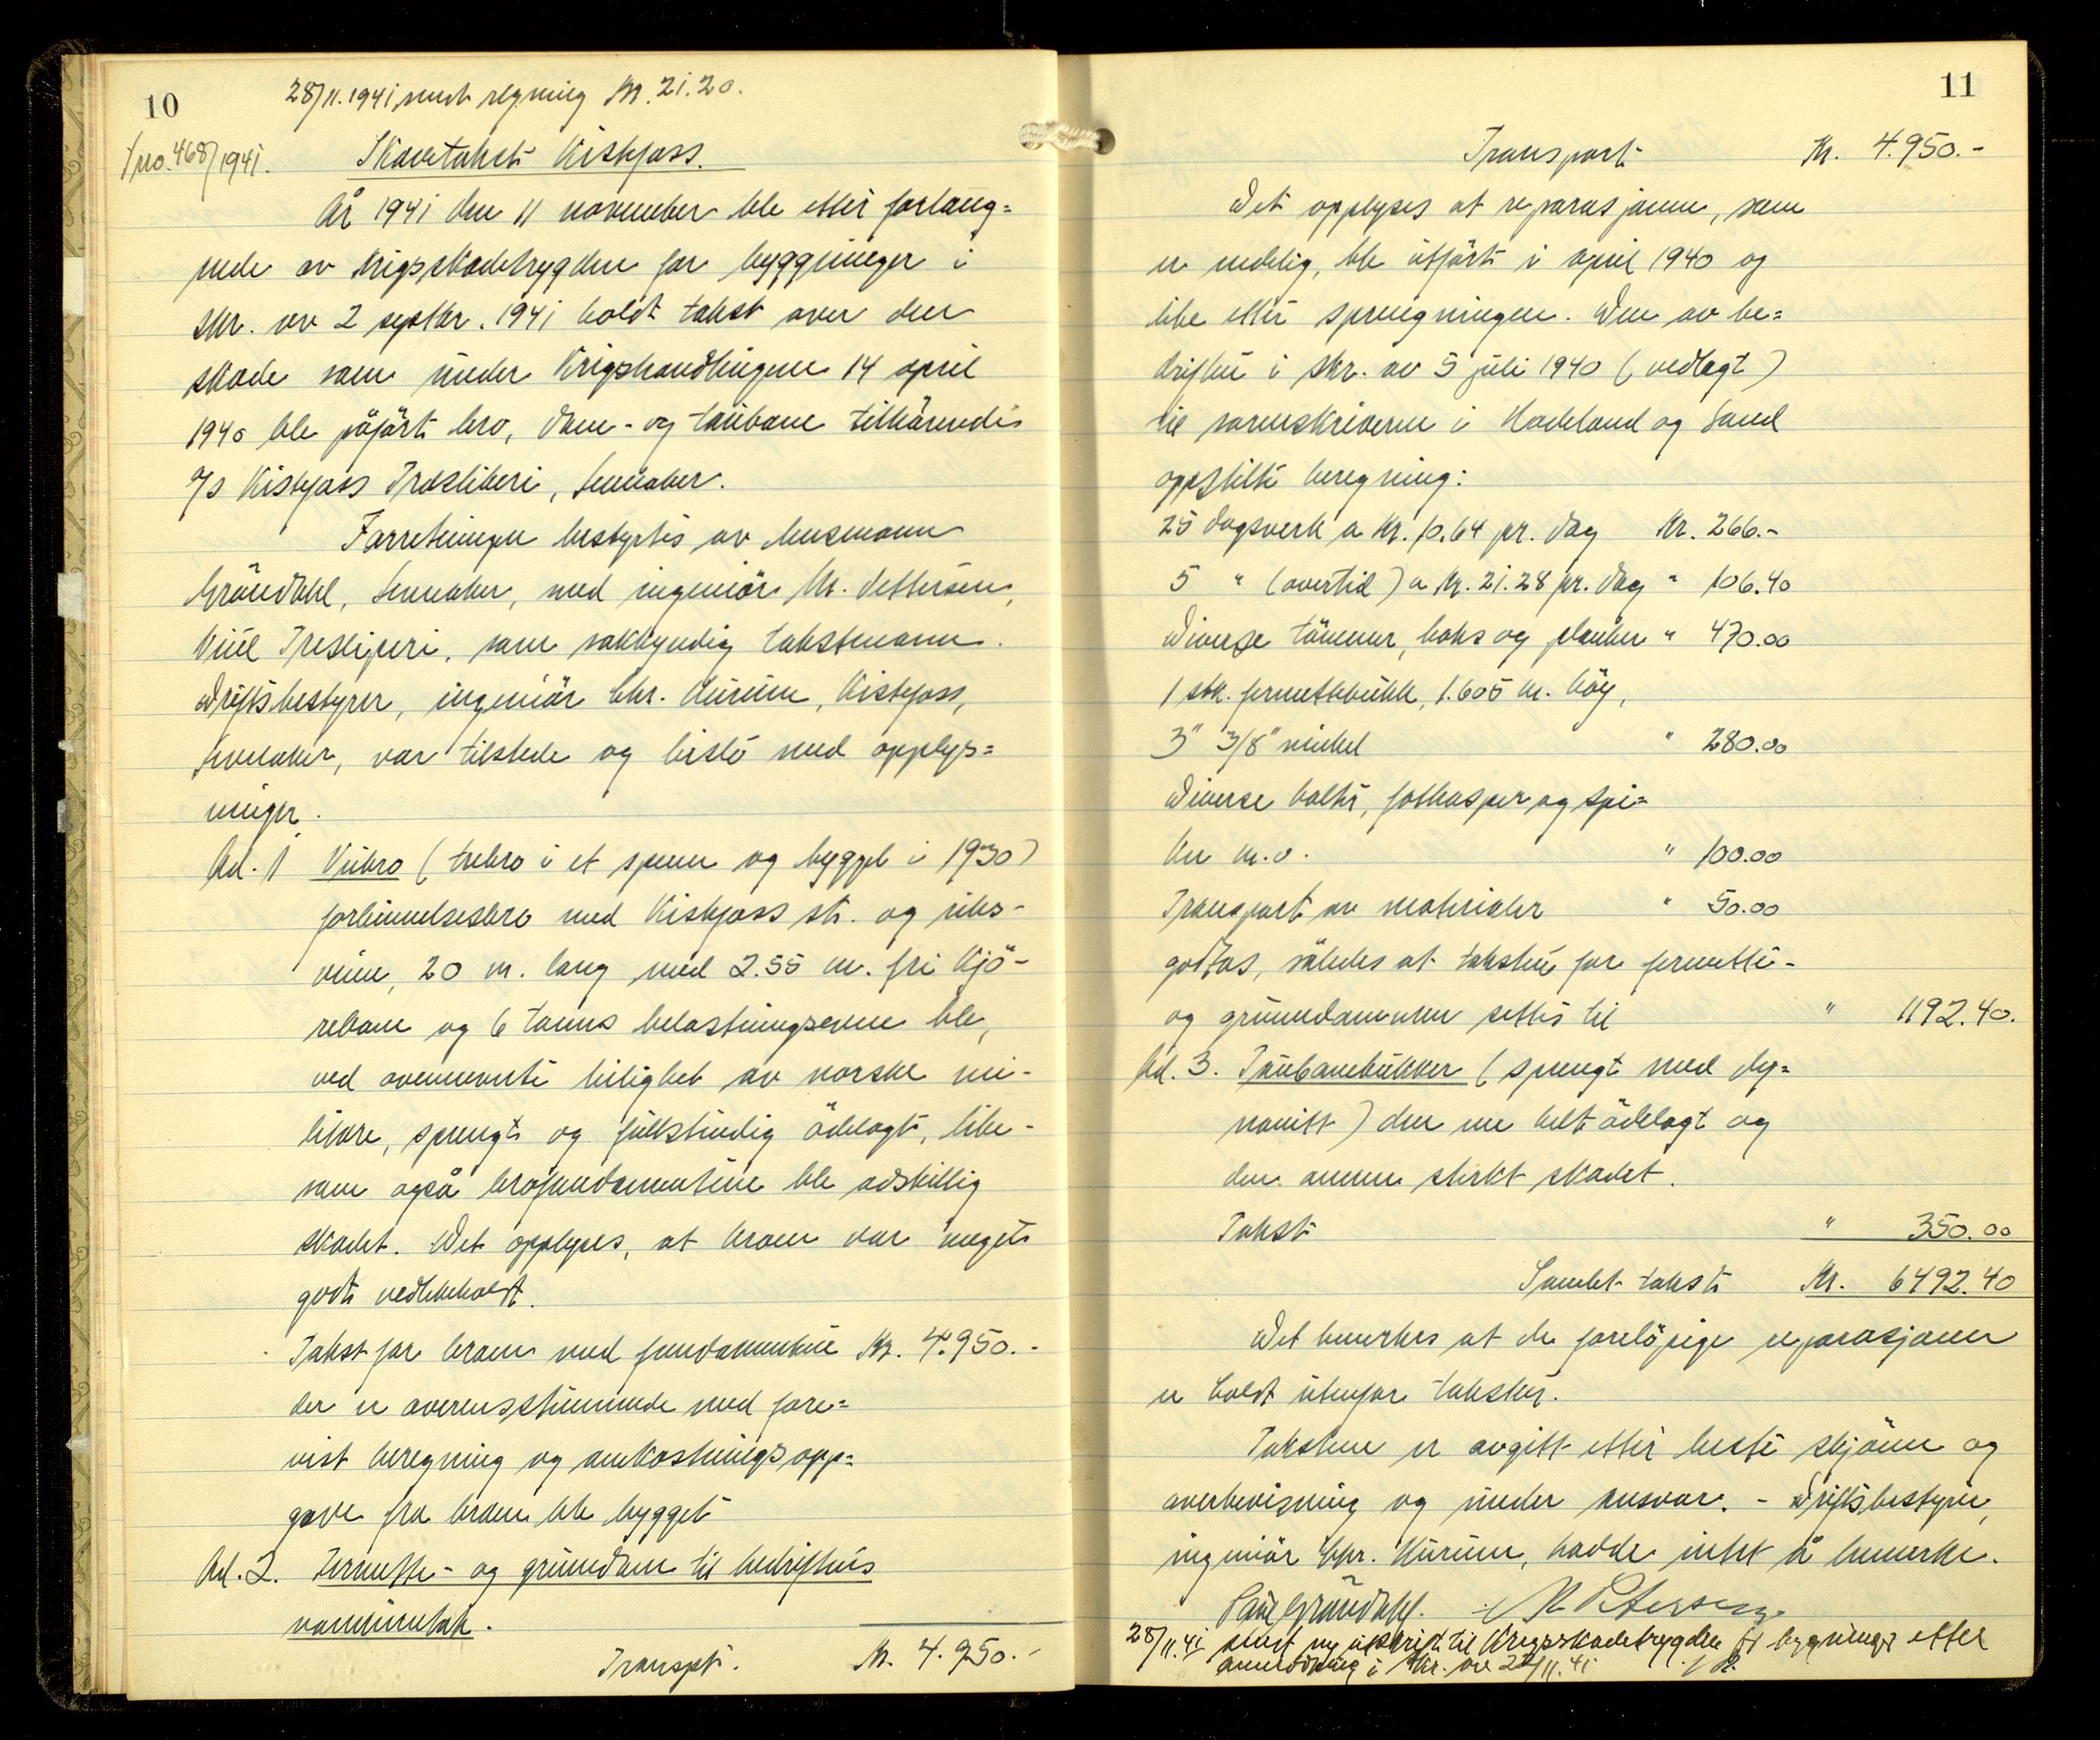 10
28/11.1941 sendt regning Kr. 21.20.
Jno. 468/1941.
Skadetakst Kistefoss.
År 1941 den 11 november ble etter forlang=
ende av Krigsskadetrygden for byggninger i
skr. av 2 septbr. 1941 holdt takst over den
skade som under Krigshandlingene 14 april
1940 ble påført bro, dam- og taubane tilhørende
A/S Kistefoss Træsliberi, Jevnaker.
Forretningen bestyrtes av lensmann
Gröndahl, Jevnaker, med ingeniør M. Pettersen,
Viul Tresliperi, som sakkyndig takstmann.
Driftsbestyrer, ingeniør Chr. Aurum, Kistefoss,
Jevnaker, var tilstede og bisto med opplys=
ninger.
Ad. 1 Viubro (trebro i et spenn og bygget i 1930)
forbindelsesbro med Kistefoss st. og riks-
veien, 20 m. lang med 2.55 m. fri kjö-
rebane og 6 tonns belastningsevne ble,
ved ovennevnte leilighet av norske mi-
litære, sprengt og fullstendig ödelagt, like-
som også brofundamentene ble adskillig
skadet. Det opplyses, at broen var meget
godt vedlikeholdt.
Takst for broen med fundamentene Kr. 4.950.-
der er overensstemmende med fore=
vist beregning og omkostningsopp=
gave fra broen ble bygget
Ad. 2. Fermette- og grunndam til bedriftens
vanninntak.
Transpt. Kr. 4.950.-
11
Transport Kr. 4.950.-
Det opplyses at reparasjonen, som
er nødelig, ble utført i april 1940 og
like etter sprengningen. Den av be=
driften i skr. av 5 juli 1940 (vedlagt)
til sorenskriveren i Hadeland og Land
oppstilte beregning:
25 dagsverk a Kr. 10.64 pr. dag Kr. 266.-
5 " (overtid) a Kr. 21.28 pr. dag " 106.40
Diverse tömmer, baks og planker " 470.00
1 stk. fermettbukk, 1.605 m. höy,
3" 3/8" vinkel " 280.00
Diverse bolter, fotkasper og spi=
ker m.v. " 100.00
Transport av materialer " 50.00
godtas, således at taksten for fermette-
og grunndammen settes til " 1192.40.
Ad. 3. Taubanebukker (sprengt med dy=
namitt) den ene helt ödelagt og
den annen sterkt skadet.
Takst " 350.00
Samlet takst Kr. 6492.40
Det bemerkes at de forelöpige reparasjoner
er holdt utenfor taksten.
Taksten er avgitt etter beste skjönn og
overbevisning og under ansvar. - Driftsbestyrer,
ingeniör Chr. Aurum, hadde intet å bemerke.
Paul Gröndahl. M Petersen
28/11.41 sendt ny utskrift til Krigsskadetrygden for bygninger efter
anmodning i skr. av 22/11.41